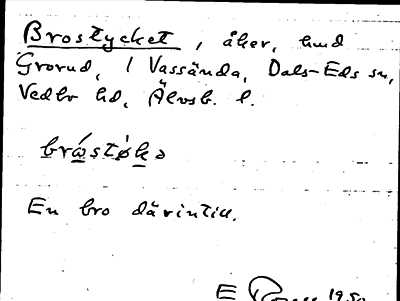 Brostycket, åker, hmd
Grorud, 1 Vassända, Dals-Eds sn,
Vedbo hd, Älvsb. l.
bråstøkə
En bro därintill.
E 1950